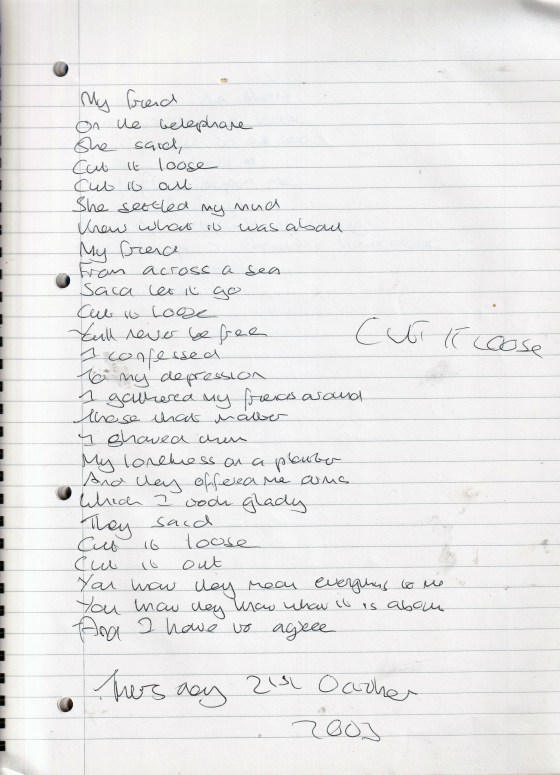 My friend
On the telephone
She said,
Cut it loose
Cut it out
She settled my mind
Knew what it was about
My friend
From across a sea
Said let it go
Cut it loose
You'll never be free
CUT IT LOOSE
I confessed
To my depression
I gathered my friends around
Those that matter
I showed them
My loneliness on a platter
And they offered me arms
Which I took gladly
They said
Cut it loose
Cut it out
You know they mean everything to me
You know they know what it is about
And I have to agree
Thursday 21st October
2003